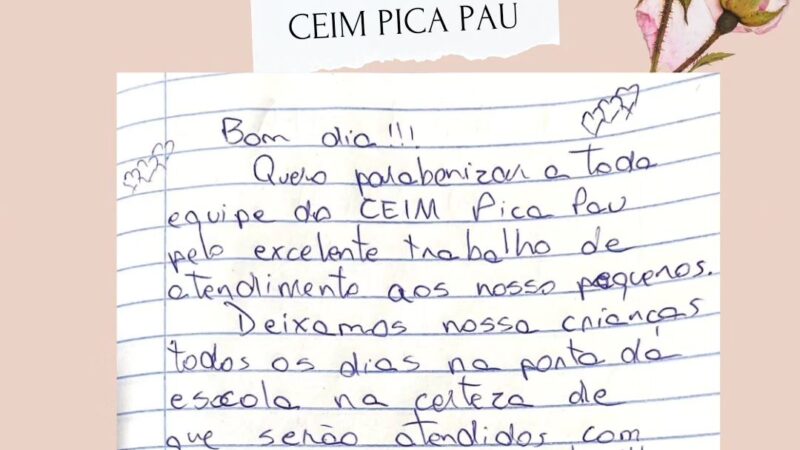 CEIM PICA PAU
Bom dia!!!
Quero parabenizar a toda
equipe do CEIM Pica Pau
pelo excelente trabalho de
atendimento aos nosso pequenos.
Deixamos nossa crianças
todos os dias na ponta da
escola na certeza de
que serão atendidos com